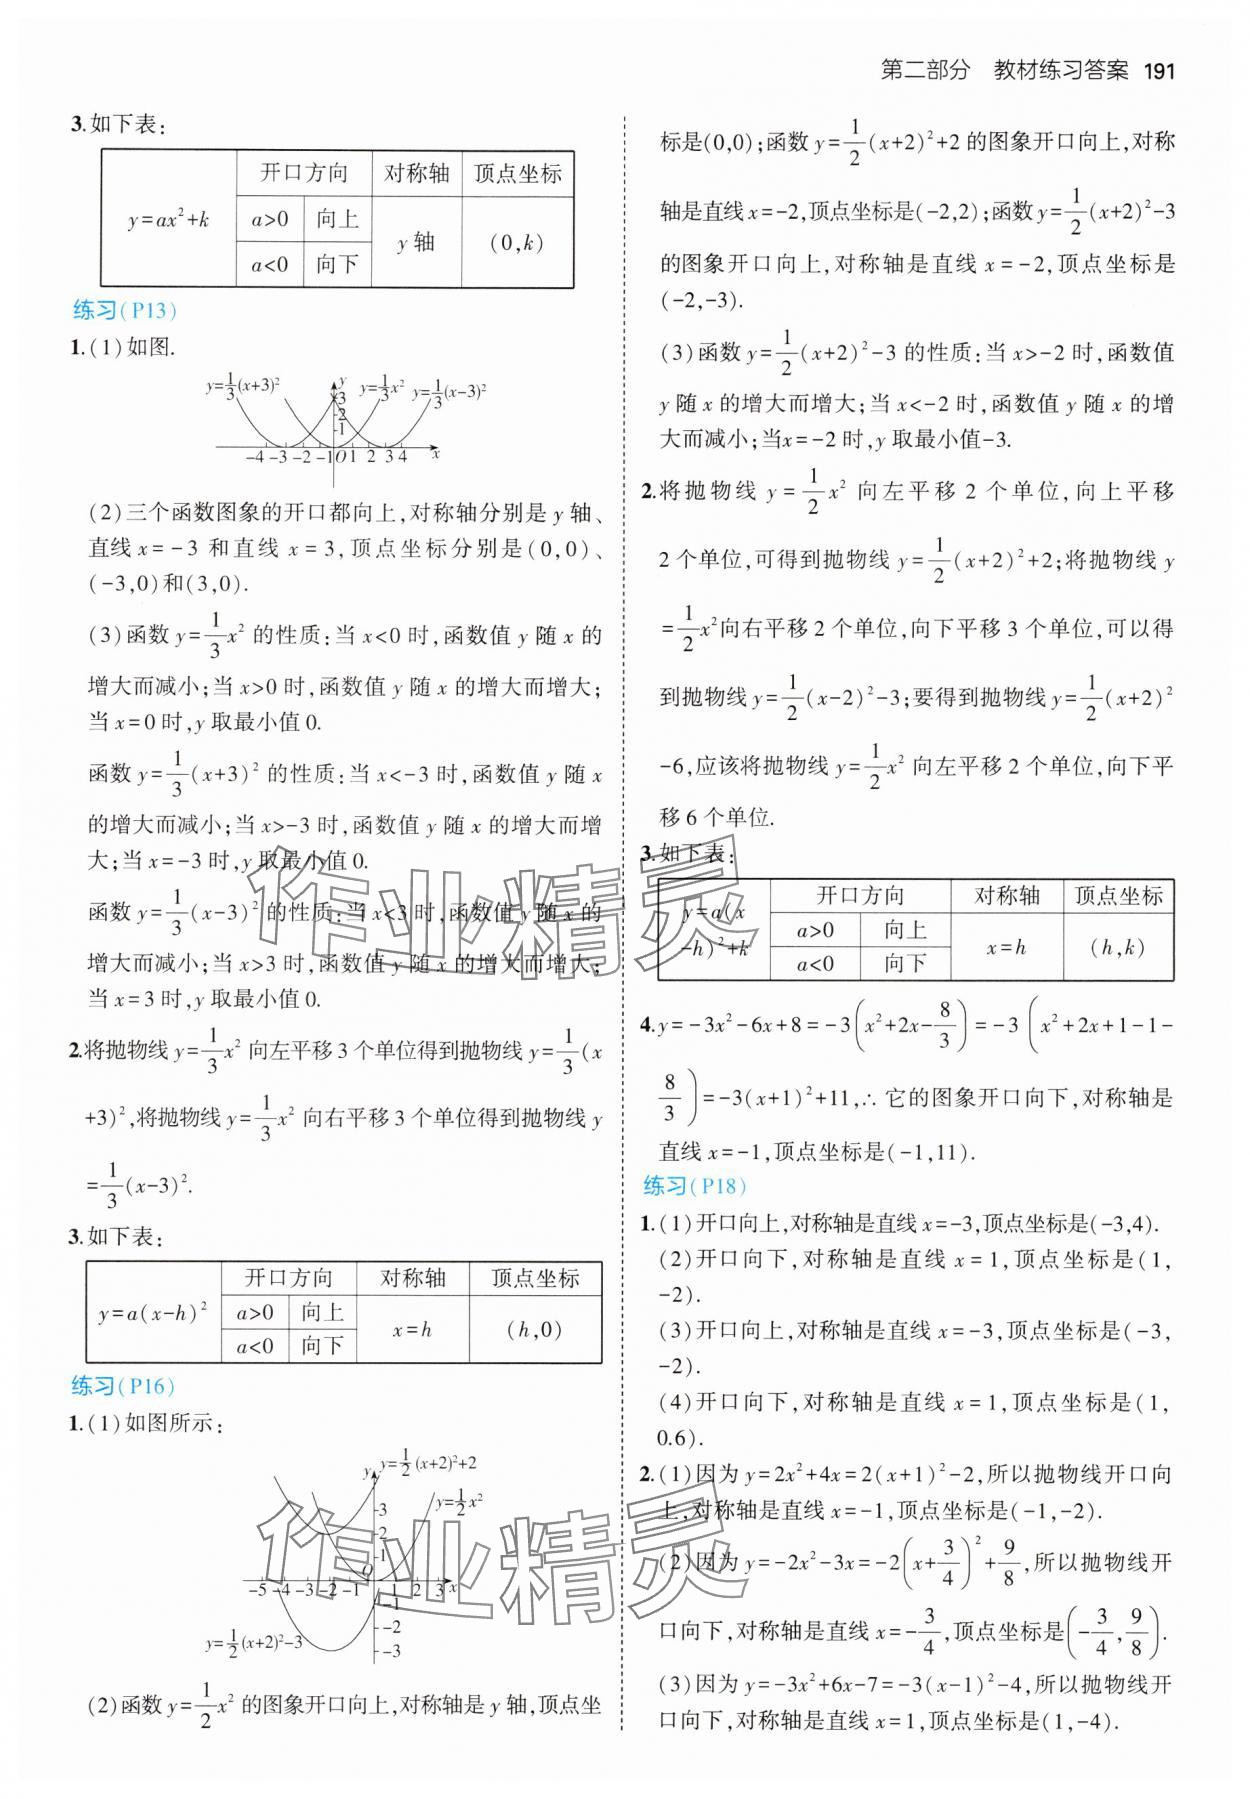 第二部分 教材练习答案 191
3.如下表:
开口方向 对称轴 顶点坐标
y=ax²+k a>0 向上 y 轴 (0,k)
a<0 向下
练习(P13)
1.(1)如图.
y=1/3(x+3)² y y=1/3x² y=1/3(x-3)²
3
2
1
-4 -3 -2 -1 O 1 2 3 4 x
(2)三个函数图象的开口都向上,对称轴分别是 y 轴、
直线 x=-3 和直线 x=3,顶点坐标分别是(0,0)、
(-3,0)和(3,0).
(3)函数 y=1/3x² 的性质:当 x<0 时,函数值 y 随 x 的
增大而减小;当 x>0 时,函数值 y 随 x 的增大而增大;
当 x=0 时,y 取最小值 0.
函数 y=1/3(x+3)² 的性质:当 x<-3 时,函数值 y 随 x
的增大而减小;当 x>-3 时,函数值 y 随 x 的增大而增
大;当 x=-3 时,y 取最小值 0.
函数 y=1/3(x-3)² 的性质:当 x<3 时,函数值 y 随 x 的
增大而减小;当 x>3 时,函数值 y 随 x 的增大而增大;
当 x=3 时,y 取最小值 0.
2.将抛物线 y=1/3x² 向左平移 3 个单位得到抛物线 y=1/3(x
+3)²,将抛物线 y=1/3x² 向右平移 3 个单位得到抛物线 y
=1/3(x-3)².
3.如下表:
开口方向 对称轴 顶点坐标
y=a(x-h)² a>0 向上 x=h (h,0)
a<0 向下
练习(P16)
1.(1)如图所示:
y y=1/2(x+2)²+2
3 y=1/2x²
2
1
O
-5 -4 -3 -2 -1 1 2 3 x
-1
-2
y=1/2(x+2)²-3 -3
(2)函数 y=1/2x² 的图象开口向上,对称轴是 y 轴,顶点坐
标是(0,0);函数 y=1/2(x+2)²+2 的图象开口向上,对称
轴是直线 x=-2,顶点坐标是(-2,2);函数 y=1/2(x+2)²-3
的图象开口向上,对称轴是直线 x=-2,顶点坐标是
(-2,-3).
(3)函数 y=1/2(x+2)²-3 的性质:当 x>-2 时,函数值
y 随 x 的增大而增大;当 x<-2 时,函数值 y 随 x 的增
大而减小;当 x=-2 时,y 取最小值-3.
2.将抛物线 y=1/2x² 向左平移 2 个单位,向上平移
2 个单位,可得到抛物线 y=1/2(x+2)²+2;将抛物线 y
=1/2x² 向右平移 2 个单位,向下平移 3 个单位,可以得
到抛物线 y=1/2(x-2)²-3;要得到抛物线 y=1/2(x+2)²
-6,应该将抛物线 y=1/2x² 向左平移 2 个单位,向下平
移 6 个单位.
3.如下表:
开口方向 对称轴 顶点坐标
y=a(x a>0 向上 x=h (h,k)
-h)²+k a<0 向下
4.y=-3x²-6x+8=-3(x²+2x-8/3)=-3(x²+2x+1-1-
8/3)=-3(x+1)²+11,∴ 它的图象开口向下,对称轴是
直线 x=-1,顶点坐标是(-1,11).
练习(P18)
1.(1)开口向上,对称轴是直线 x=-3,顶点坐标是(-3,4).
(2)开口向下,对称轴是直线 x=1,顶点坐标是(1,
-2).
(3)开口向上,对称轴是直线 x=-3,顶点坐标是(-3,
-2).
(4)开口向下,对称轴是直线 x=1,顶点坐标是(1,
0.6).
2.(1)因为 y=2x²+4x=2(x+1)²-2,所以抛物线开口向
上,对称轴是直线 x=-1,顶点坐标是(-1,-2).
(2)因为 y=-2x²-3x=-2(x+3/4)²+9/8,所以抛物线开
口向下,对称轴是直线 x=-3/4,顶点坐标是(-3/4,9/8).
(3)因为 y=-3x²+6x-7=-3(x-1)²-4,所以抛物线开
口向下,对称轴是直线 x=1,顶点坐标是(1,-4).
作业精灵
作业精灵